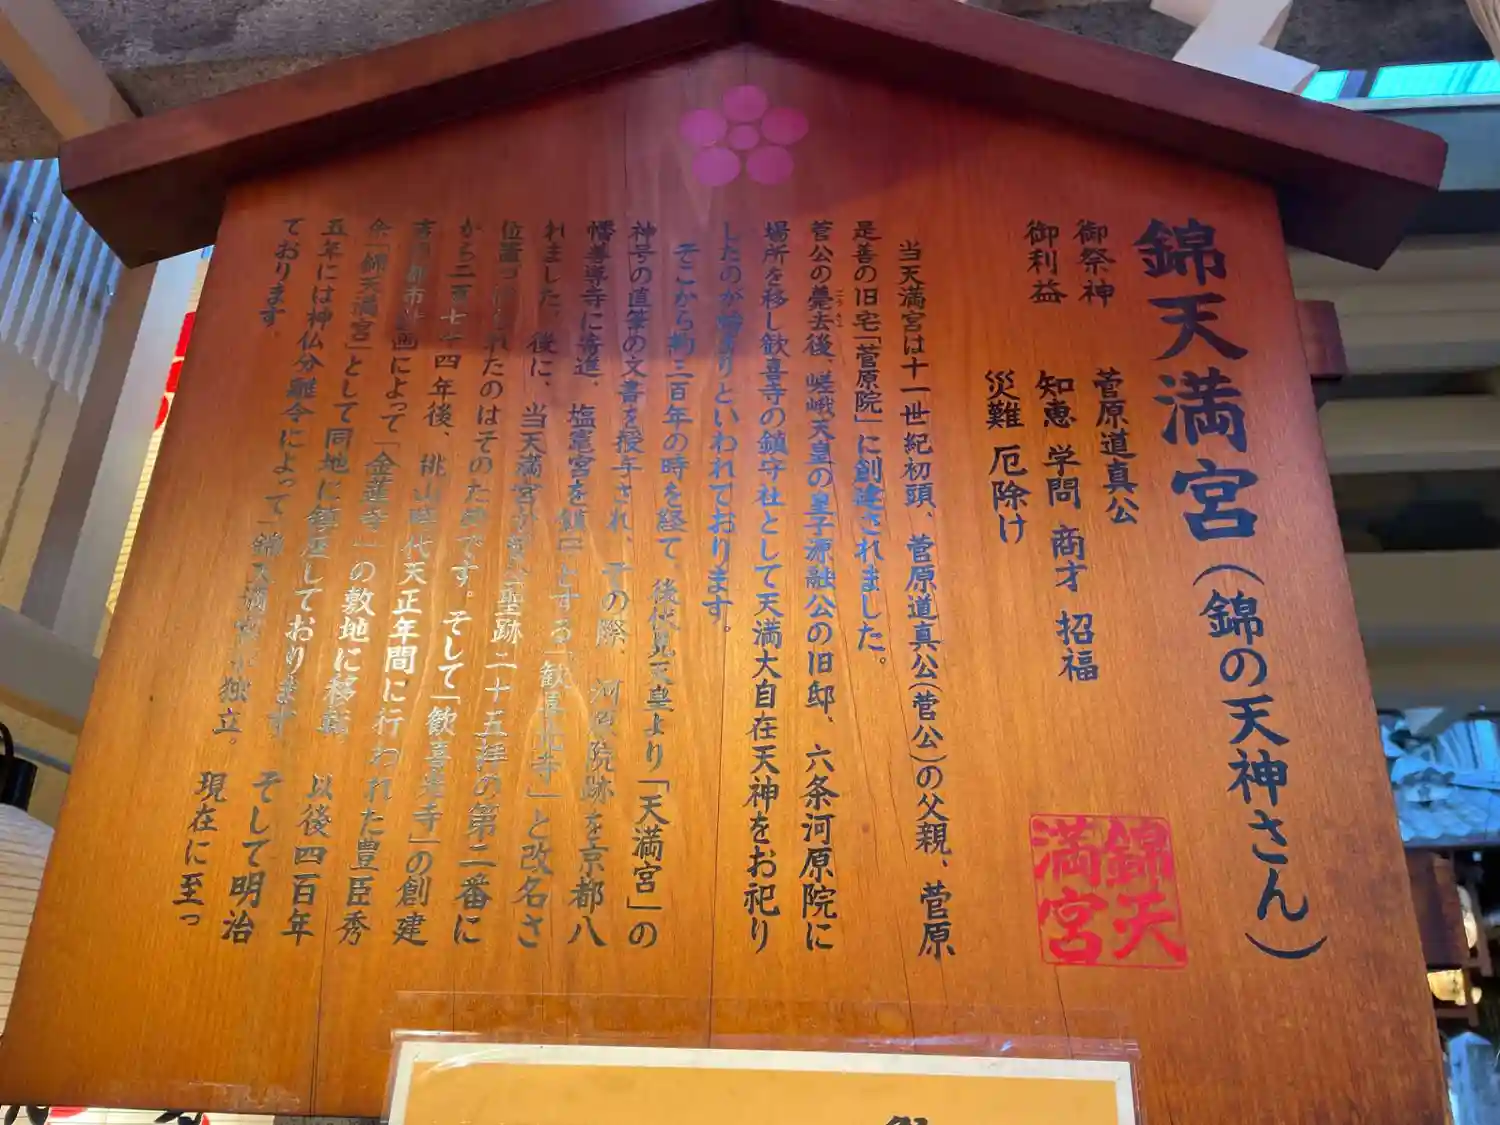 錦天満宮（錦の天神さん）
御祭神 菅原道真公
御利益 知恵 学問 商才 招福
災難 厄除け
錦天
満宮
当天満宮は十一世紀初頭、菅原道真公（菅公）の父親、菅原
是善の旧宅「菅原院」に創建されました。
菅公の薨去後、嵯峨天皇の皇子源融公の旧邸、六条河原院に
場所を移し歓喜寺の鎮守社として天満大自在天神をお祀り
したのが始まりといわれております。
そこから約三百年の時を経て、後伏見天皇より「天満宮」の
神号の直筆の文書を授与され、その際、河原院跡を京都八
幡善導寺に寄進、塩竈宮を鎮守とする「歓喜光寺」と改名さ
れました。後に、当天満宮が菅公聖跡二十五拝の第二番に
位置づけられたのはそのためです。そして「歓喜光寺」の創建
から二百七十四年後、桃山時代天正年間に行われた豊臣秀
吉の都市計画によって「金蓮寺」の敷地に移転。以後四百年
余「錦天満宮」として同地に鎮座しております。そして明治
五年には神仏分離令によって「錦天満宮」が独立。現在に至っ
ております。